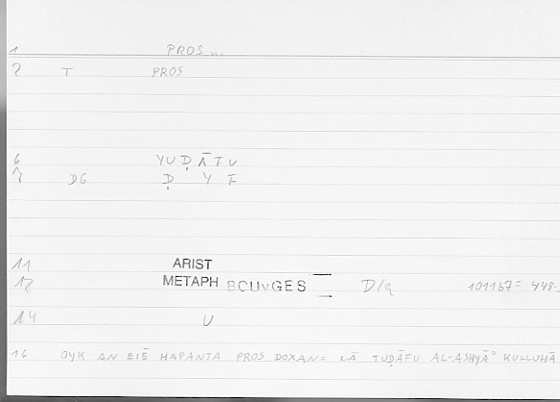 1 PROS...
2 T PROS
6 YUḌĀFU
7 DG Ḍ Y F
11 ARIST
12 METAPH BOUYGES D/a 1011b7= 448.
14 U
16 OYK AN EIĒ HAPANTA PROS DOXAN= LĀ TUḌĀFU AL-ASHYĀʾ KULLUHĀ